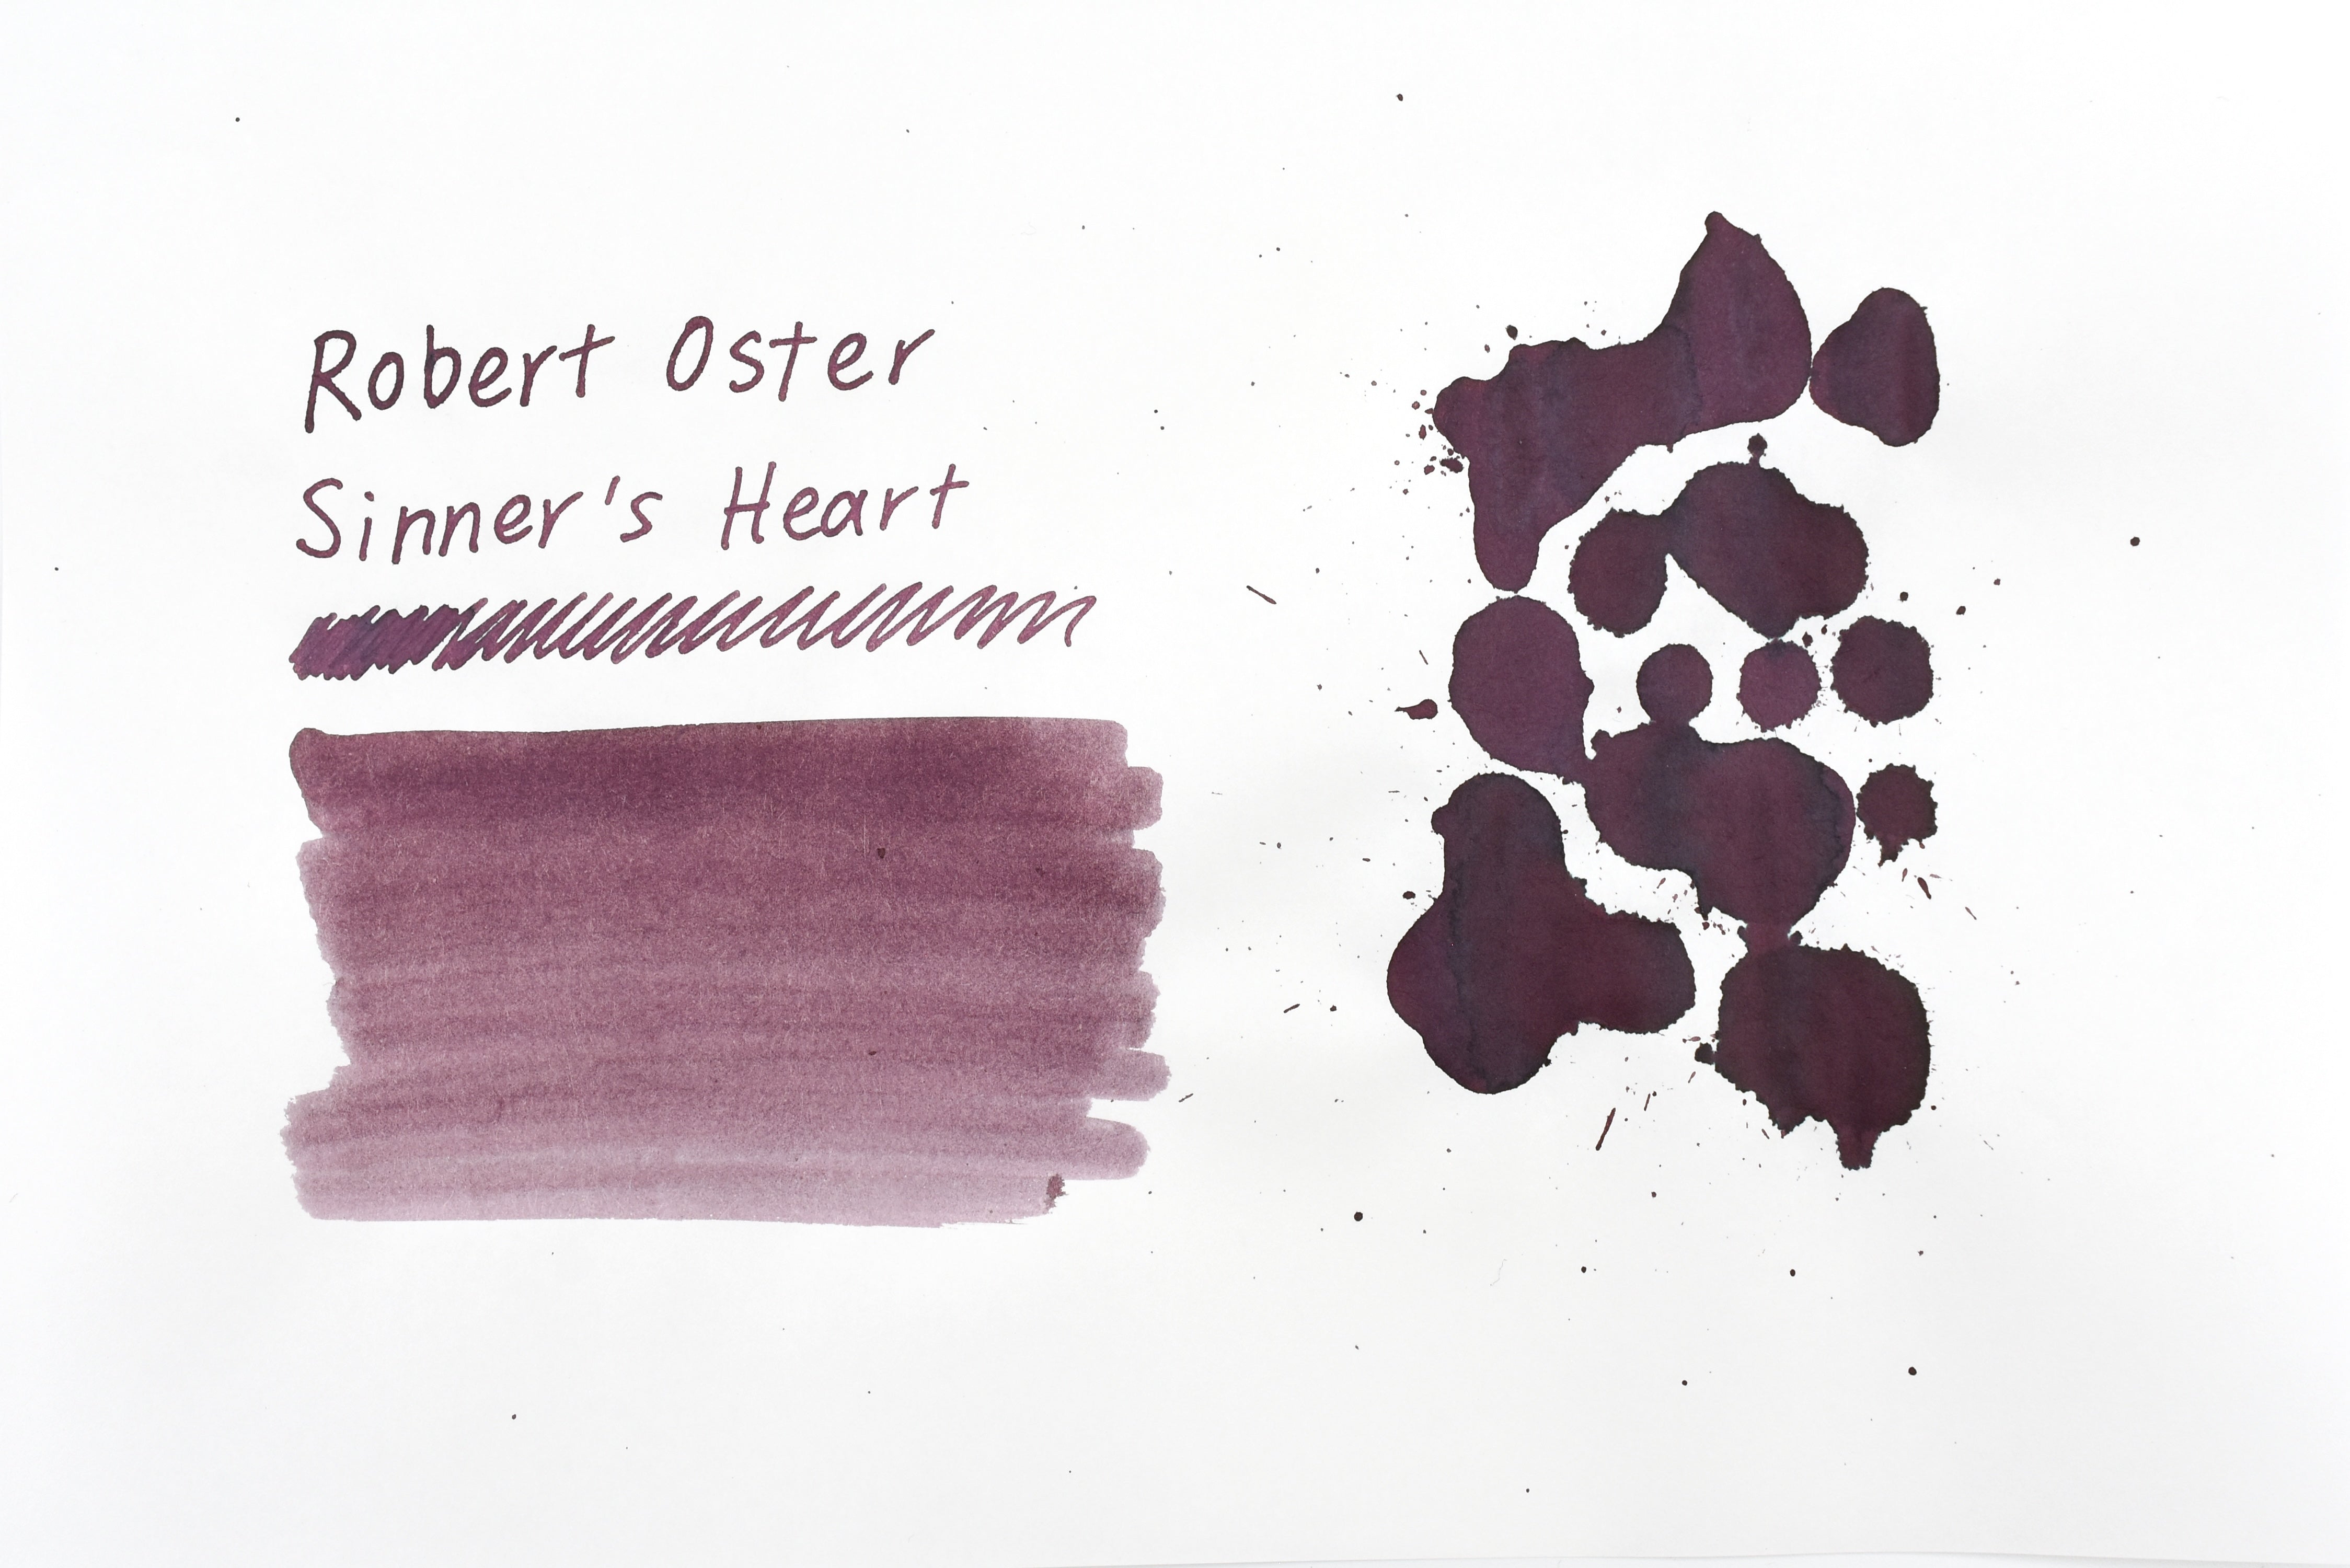 Robert Oster
Sinner's Heart